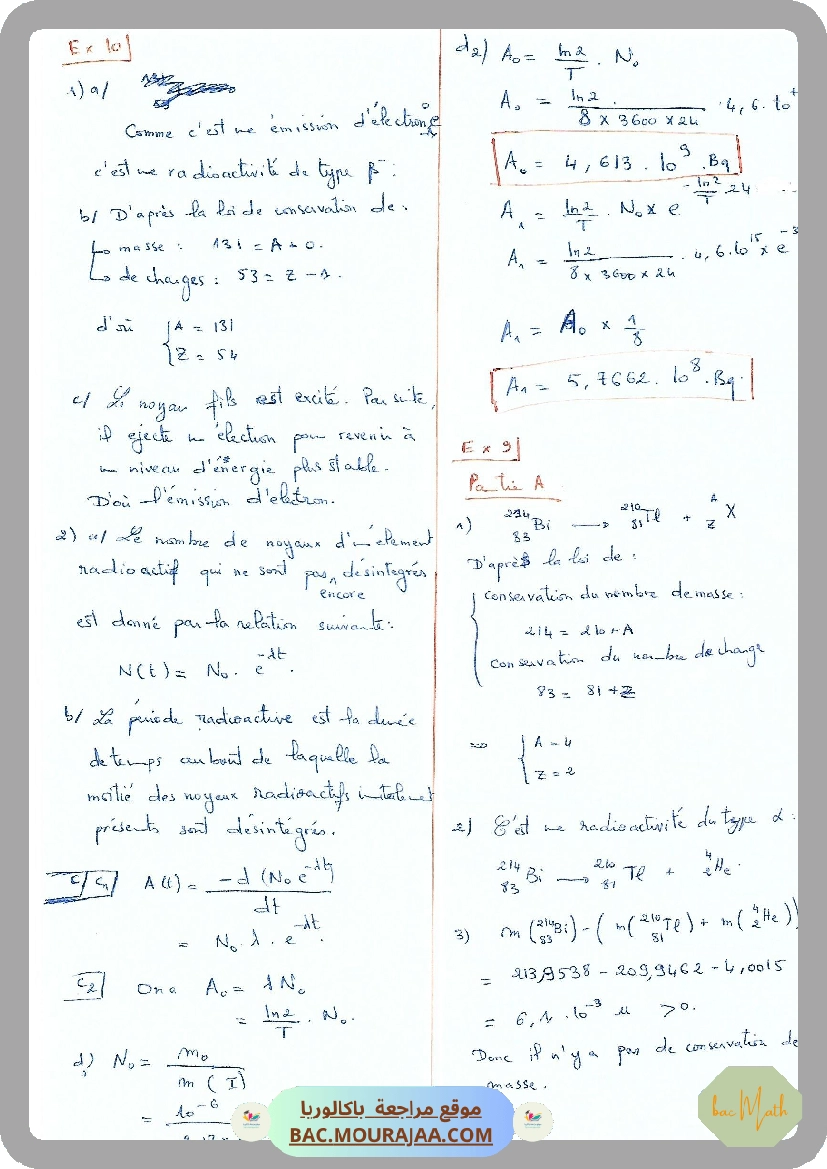 Ex 10
1) a/
Comme c'est une émission d'électron ⁰₋₁e
c'est une radioactivité de type β⁻ :
b/ D'après la loi de conservation de :
masse : 131 = A + 0.
de charges : 53 = Z - 1.
d'où { A = 131
Z = 54
c/ Le noyau fils est excité. Par suite,
il ejecte un électron pour revenir à
un niveau d'énergie plus stable.
D'où l'émission d'eletron.
2) a/ Le nombre de noyaux d'un élement
radioactif qui ne sont pas encore désintegrés
est donné par la relation suivante :
N(t) = N₀ . e^-λt .
b/ La période radioactive est la durée
de temps au bout de laquelle la
moitié des noyaux radioactifs
présents sont désintégrés.
c/ c₁/ A(t) = -d (N₀ e^-λt) / dt
= N₀ . λ . e^-λt .
c₂ On a A₀ = λ N₀
= ln2/T . N₀ .
d₁) N₀ = m₀ / m(I)
= 10⁻⁶ /
d₂) A₀ = ln2/T . N₀
A₀ = ln2 / 8 x 3600 x 24 . 4,6 . 10
A₀ = 4,613 . 10⁹ . Bq
A₁ = ln2/T . N₀ x e^-ln2/T . 24
A₁ = ln2 / 8 x 3600 x 24 . 4,6 . 10¹⁵ x e⁻³
A₁ = A₀ x 1/8
A₁ = 5,7662 . 10⁸ . Bq
Ex 9
Partie A
1) ²¹⁴₈₃Bi → ²¹⁰₈₁Tl + ᴬzX
D'après la loi de :
conservation du nombre de masse :
214 = 210 + A
conservation du nombre de charge
83 = 81 + Z
=> { A = 4
Z = 2
2) C'est une radioactivité du type α :
²¹⁴₈₃Bi → ²¹⁰₈₁Tl + ⁴₂He .
3) m(²¹⁴₈₃Bi) - ( m(²¹⁰₈₁Tl) + m(⁴₂He))
= 213,9538 - 209,9462 - 4,0015
= 6,1 . 10⁻³ u > 0.
Donc il n'y a pas de conservation de
masse.
موقع مراجعة باكالوريا
BAC.MOURAJAA.COM
bacMath